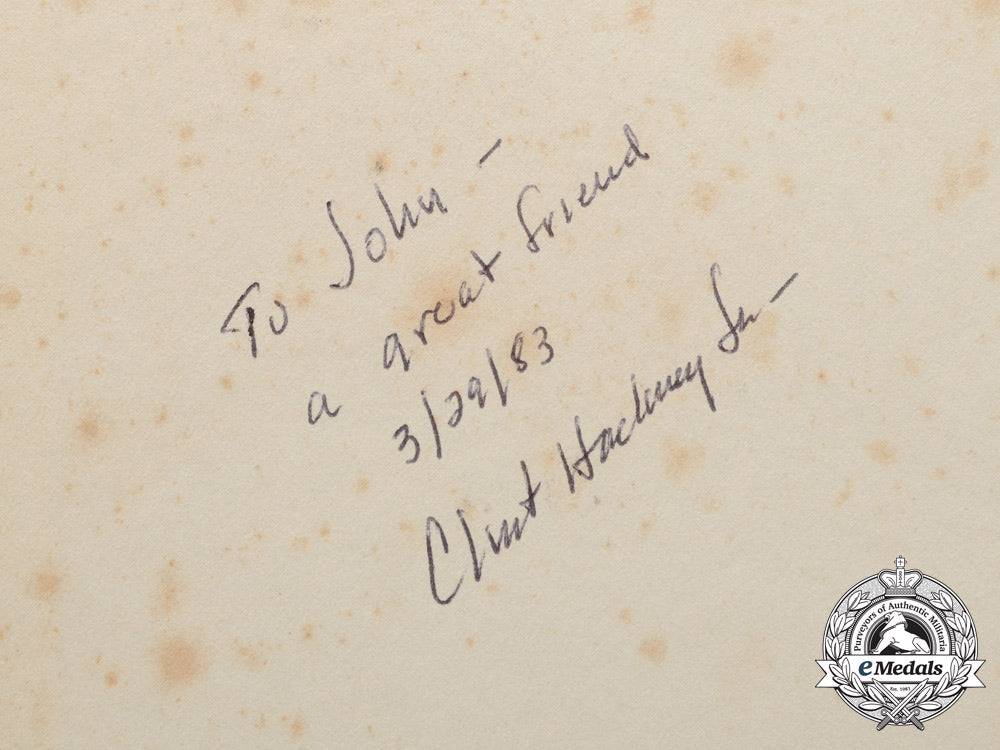 To John -
a great friend
3/29/83
Clint Hackney Sr -
Purveyors of Authentic Militaria
eMedals
Est. 1981